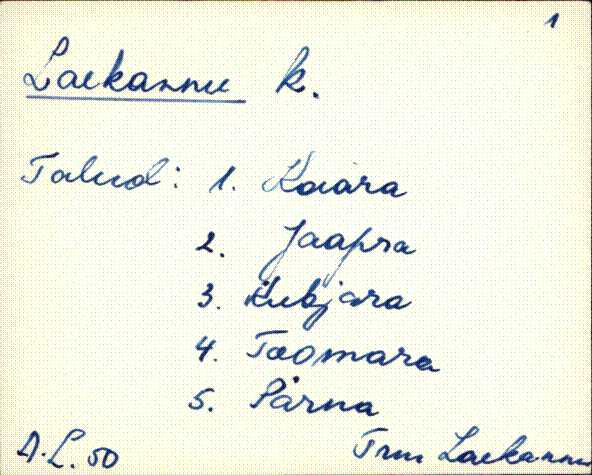 1
Laekannu k.
Talud: 1. Kaiara
2. Jaapra
3. Kubjara
4. Toomara
5. Pärna
A.L. 50 Trm Laekannu